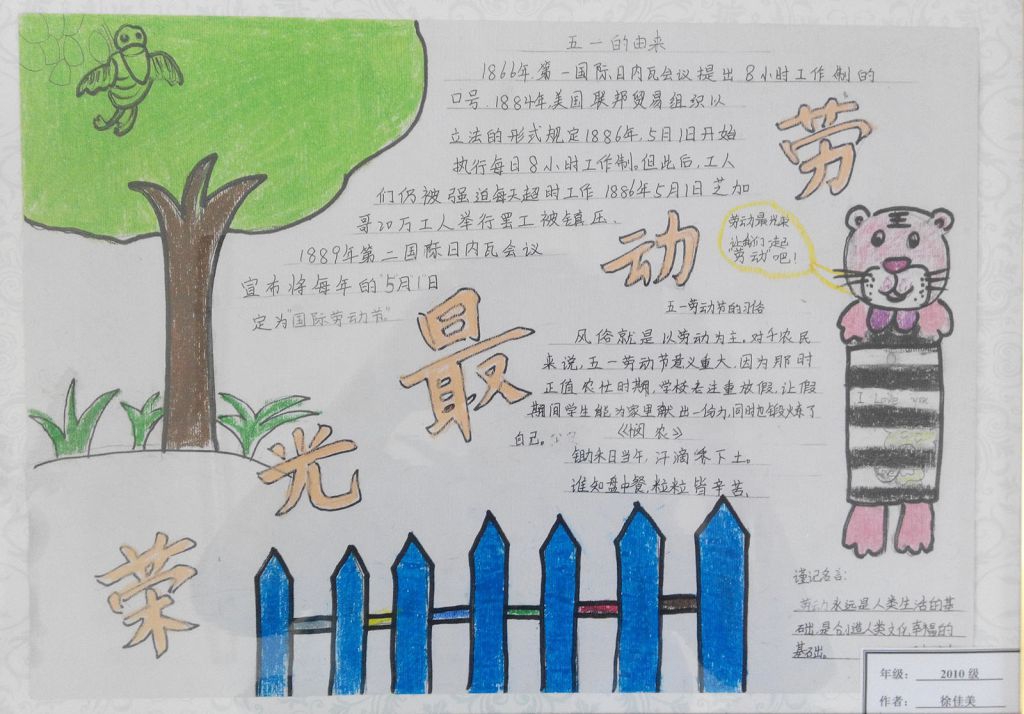 五一的由来
1866年第一国际日内瓦会议提出8小时工作制的
口号.1884年美国联邦贸易组织以
立法的形式规定1886年,5月1日开始
执行每日8小时工作制.但此后,工人
们仍被强迫每天超时工作1886年5月1日芝加
哥20万工人举行罢工被镇压.
1889年第二国际日内瓦会议
宣布将每年的"5月1日
定为"国际劳动节"
劳
动
最
光
荣
劳动最光荣
让我们一起
"劳动"吧!
五一劳动节的习俗
风俗就是以劳动为主.对于农民
来说,五一劳动节意义重大,因为那时
正值农忙时期,学校会注重放假,让假
期间学生能为家里献出一份力,同时也锻炼了
自己。
《悯农》
锄禾日当午,汗滴禾下土。
谁知盘中餐,粒粒皆辛苦.
I Love you
谨记名言:
劳动永远是人类生活的基
础,是创造人类文化幸福的
基础。
年级: 2010级
作者: 徐佳美